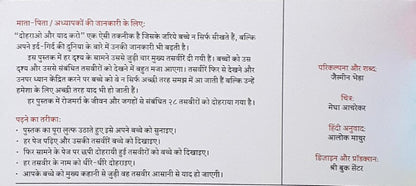 माता-पिता / अध्यापकों की जानकारी के लिए:
"दोहराओ और याद करो" एक ऐसी तकनीक है जिसके जरिये बच्चे न सिर्फ सीखते हैं, बल्कि
अपने इर्द-गिर्द की दुनिया के बारे में उनकी जानकारी भी बढ़ती है।
इस पुस्तक में हर दृश्य के सामने उससे जुड़ी चार मुख्य तसवीरें दी गयी हैं। बच्चों को उस
दृश्य और उससे संबंधित तसवीरों को देखने में बहुत मजा आएगा। तसवीरें फिर से देखने और
उनपर ध्यान केंद्रित करने पर बच्चे को वे न सिर्फ अच्छी तरह समझ में आ जाती हैं बल्कि उन्हें
हमेशा के लिए अच्छी तरह याद भी हो जाती हैं।
हर पुस्तक में रोजमर्रा के जीवन और जगहों से संबंधित २८ तसवीरों को दोहराया गया है।
पढ़ने का तरीका:
• पुस्तक का पूरा लुत्फ उठाते हुए इसे अपने बच्चे को सुनाइए।
• हर पेज पढ़िए और उसकी तसवीरें बच्चे को दिखाइए।
• फिर सामने के पेज पर छपी दोहरायी हुई तसवीरों को बच्चे को दिखाइए।
• हर तसवीर के नाम को धीरे-धीरे दोहराइए।
• आपके बच्चे को मुख्य कहानी से जुड़ी वह तसवीर आसानी से याद हो जाएगी।
परिकल्पना और शब्द:
जैस्मीन भेड़ा
चित्र:
मेधा आचरेकर
हिंदी अनुवाद:
आलोक माथुर
डिजाइन और प्रॉडक्शन:
श्री बुक सेंटर